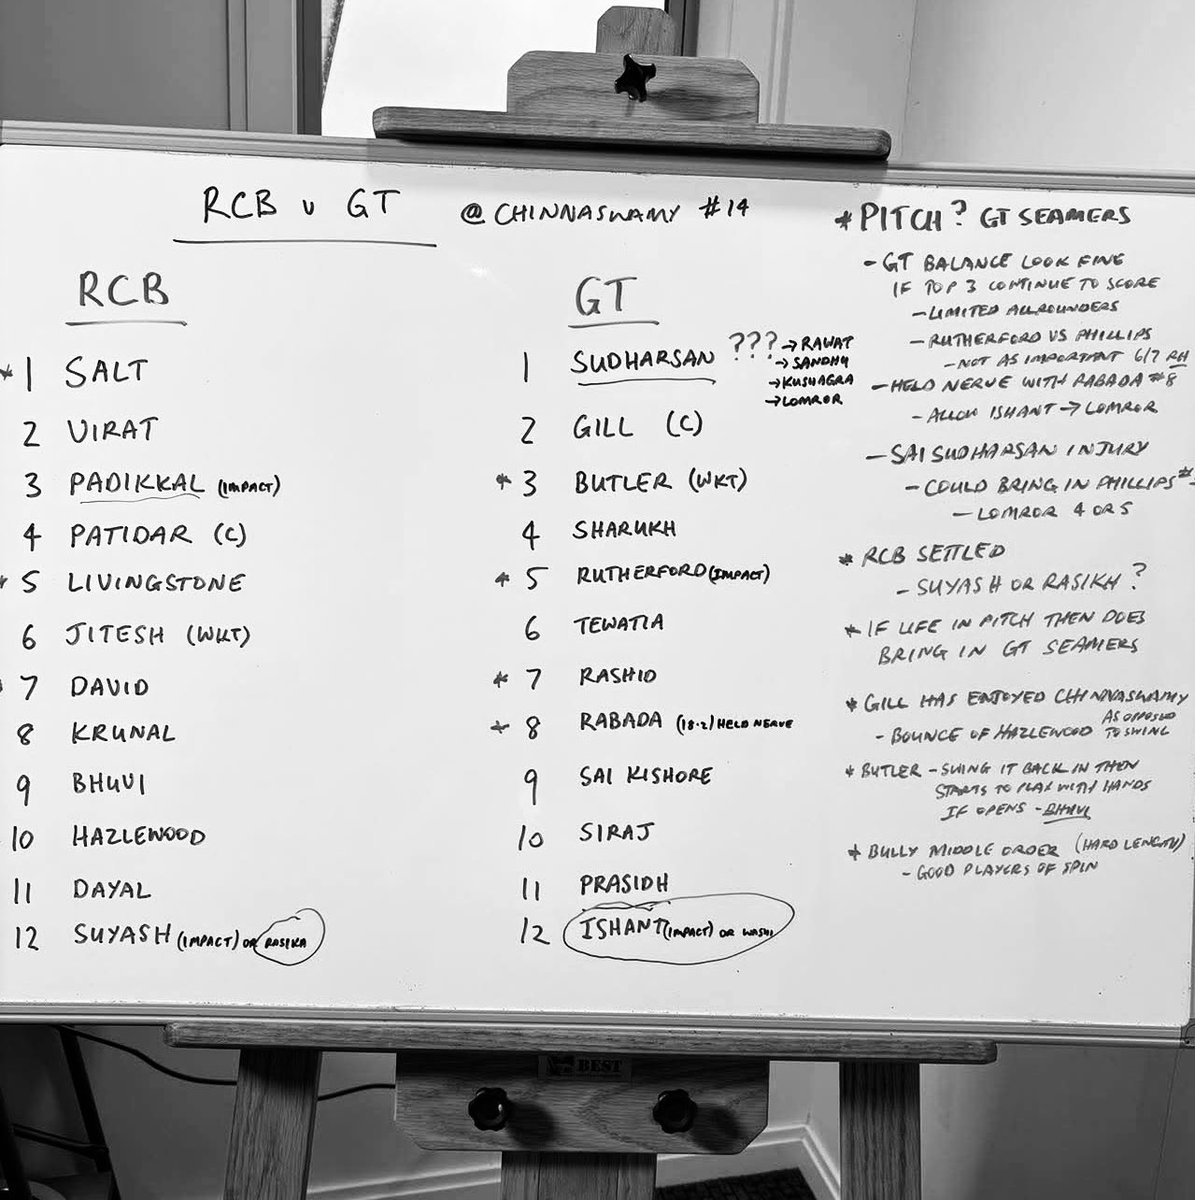 RCB v GT @ CHINNASWAMY #14
RCB
* 1 SALT
2 VIRAT
3 PADIKKAL (IMPACT)
4 PATIDAR (C)
* 5 LIVINGSTONE
6 JITESH (WKT)
7 DAVID
8 KRUNAL
9 BHUVI
10 HAZLEWOOD
11 DAYAL
12 SUYASH (IMPACT) OR RASIKA
GT
1 SUDHARSAN ??? → RAWAT
→ SANDHU
→ KUSHAGRA
→ LOMROR
2 GILL (C)
* 3 BUTLER (WKT)
4 SHARUKH
* 5 RUTHERFORD (IMPACT)
6 TEWATIA
* 7 RASHID
* 8 RABADA (18.2) HELD NERVE
9 SAI KISHORE
10 SIRAJ
11 PRASIDH
12 ISHANT (IMPACT) OR WASHI
* PITCH? GT SEAMERS
- GT BALANCE LOOK FINE
IF TOP 3 CONTINUE TO SCORE
- LIMITED ALLROUNDERS
- RUTHERFORD VS PHILLIPS
- NOT AS IMPORTANT 6/7 RH
- HELD NERVE WITH RABADA #8
- ALLOW ISHANT → LOMROR
- SAI SUDHARSAN INJURY
- COULD BRING IN PHILLIPS #
- LOMROR 4 OR 5
* RCB SETTLED
- SUYASH OR RASIKH?
* IF LIFE IN PITCH THEN DOES
BRING IN GT SEAMERS
* GILL HAS ENJOYED CHINNASWAMY
- BOUNCE OF HAZLEWOOD AS OPPOSED
TO SWING
* BUTLER - SWING IT BACK IN THEN
STARTS TO PLAY WITH HANDS
IF OPENS - BHUVI
* BULLY MIDDLE ORDER (HARD LENGTH)
- GOOD PLAYERS OF SPIN
BEST